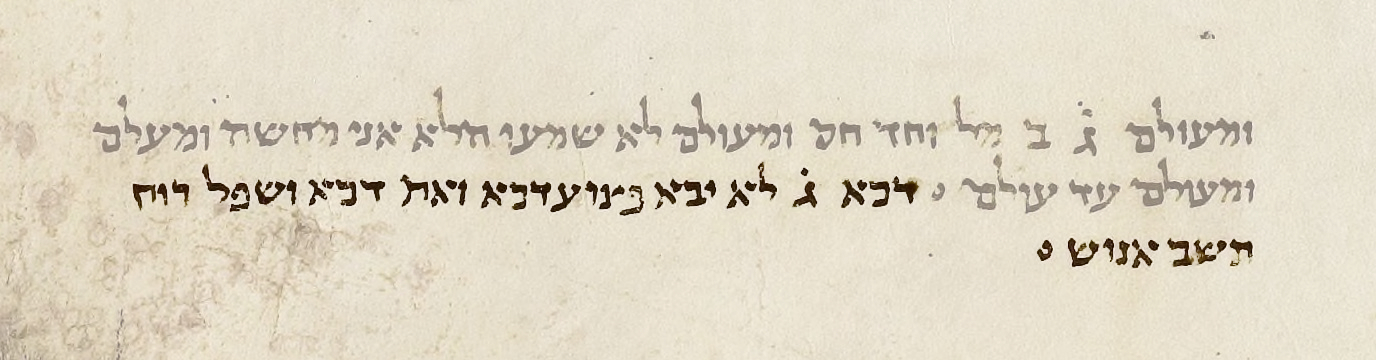 ומעולם ג̇ ב מל וחד חס ומעולם לא שמעו הלא אני מחשה ומעלם
ומעולם עד עולם ס דכא ג̇ לא יבא פצוע דכא ואת דכא ושפל רוח
תשב אנוש ס